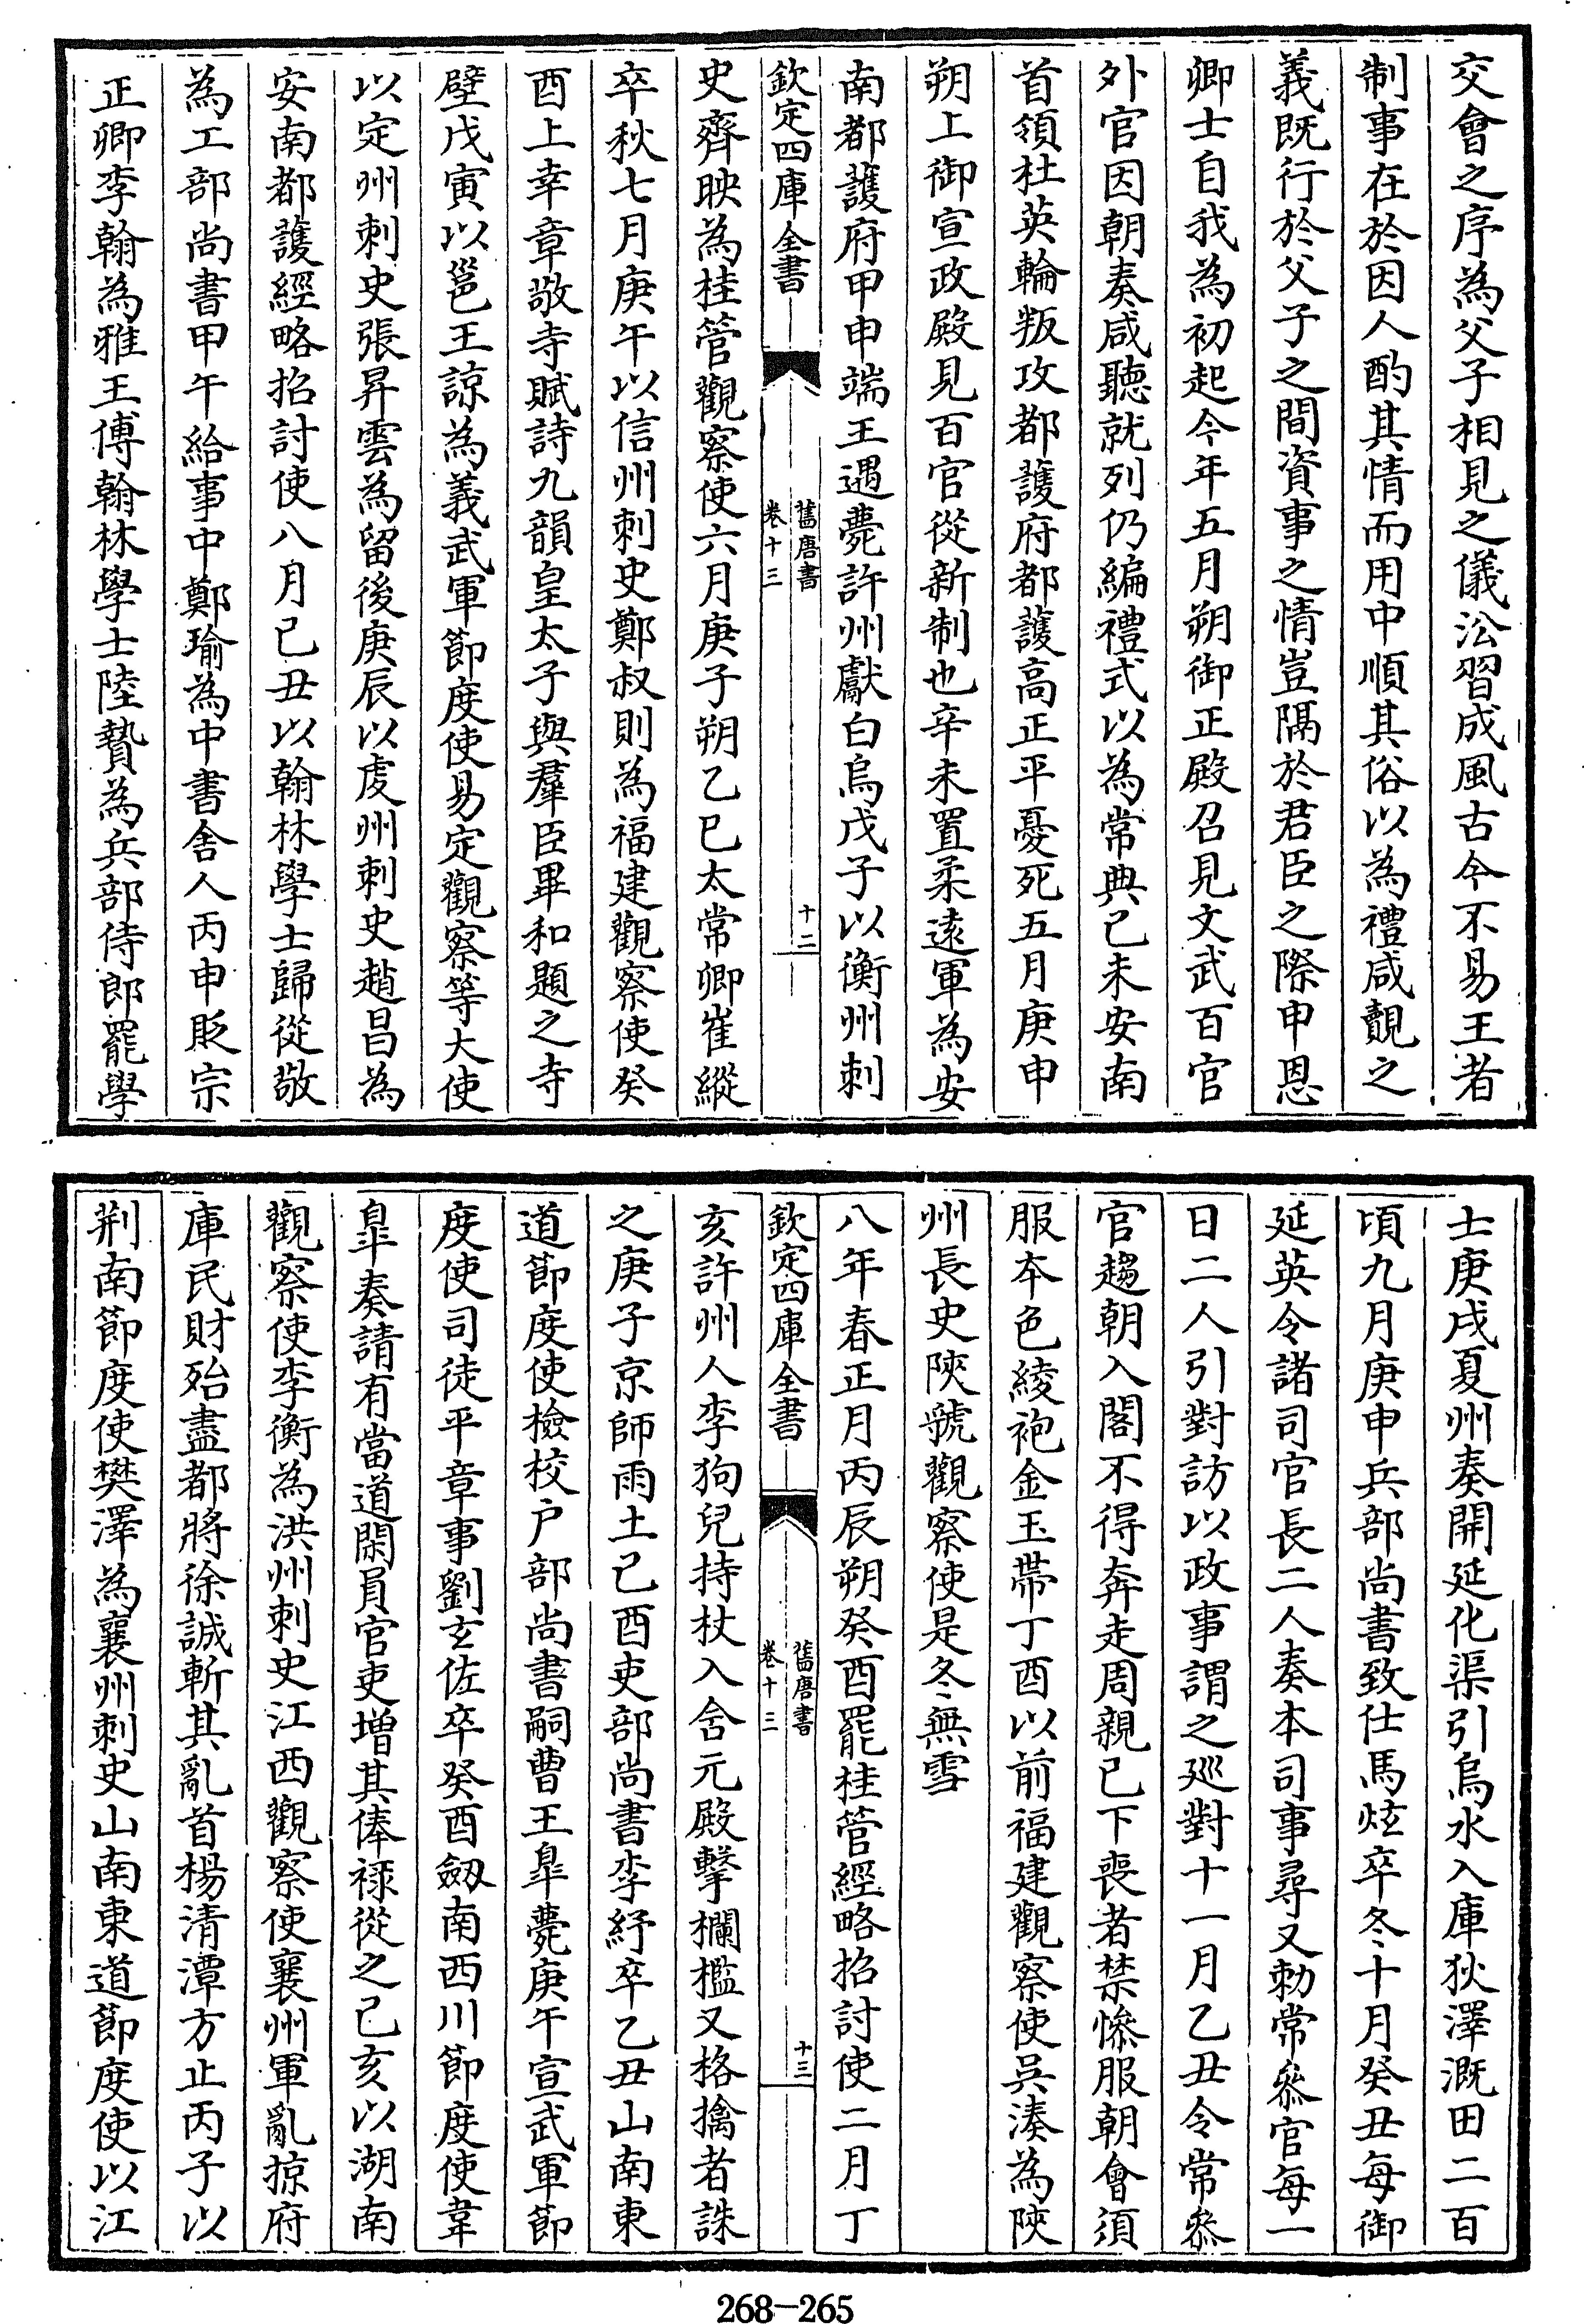 交會之序為父子相見之儀沿習成風古今不易王者
制事在於因人酌其情而用中順其俗以為禮咸覿之
義既行於父子之間資事之情豈隔於君臣之際申恩
卿士自我為初起今年五月朔御正殿召見文武百官
外官因朝奏咸聽就列仍編禮式以為常典已未安南
首領杜英輪叛攻都護府都護高正平憂死五月庚申
朔上御宣政殿見百官從新制也辛未置柔遠軍為安
南都護府甲申端王遇薨許州獻白烏戊子以衡州刺
欽定四庫全書
舊唐書
卷十三
十二
史齊映為桂管觀察使六月庚子朔乙巳太常卿崔縱
卒秋七月庚午以信州刺史鄭叔則為福建觀察使癸
酉上幸章敬寺賦詩九韻皇太子與羣臣畢和題之寺
壁戊寅以邕王謜為義武軍節度使易定觀察等大使
以定州刺史張昇雲為留後庚辰以虔州刺史趙昌為
安南都護經略招討使八月已丑以翰林學士歸從敬
為工部尚書甲午給事中鄭瑜為中書舍人丙申貶宗
正卿李翰為雅王傅翰林學士陸贄為兵部侍郎罷學
士庚戌夏州奏開延化渠引烏水入庫狄澤溉田二百
頃九月庚申兵部尚書致仕馬炫卒冬十月癸丑每御
延英令諸司官長二人奏本司事尋又勅常叅官每一
日二人引對訪以政事謂之廵對十一月乙丑令常叅
官趨朝入閣不得奔走周親已下喪者禁慘服朝會須
服夲色綾袍金玉帶丁酉以前福建觀察使吳湊為陝
州長史陝虢觀察使是冬無雪
八年春正月丙辰朔癸酉罷桂管經略招討使二月丁
欽定四庫全書
舊唐書
卷十三
十三
亥許州人李狗兒持杖入含元殿擊欄檻又格擒者誅
之庚子京師雨土已酉吏部尚書李紓卒乙丑山南東
道節度使檢校户部尚書嗣曹王臯薨庚午宣武軍節
度使司徒平章事劉玄佐卒癸酉劔南西川節度使韋
臯奏請有當道閑員官吏增其俸禄從之已亥以湖南
觀察使李衡為洪州刺史江西觀察使襄州軍亂掠府
庫民財殆盡都將徐誠斬其亂首楊清潭方止丙子以
荆南節度使樊澤為襄州刺史山南東道節度使以江
268-265